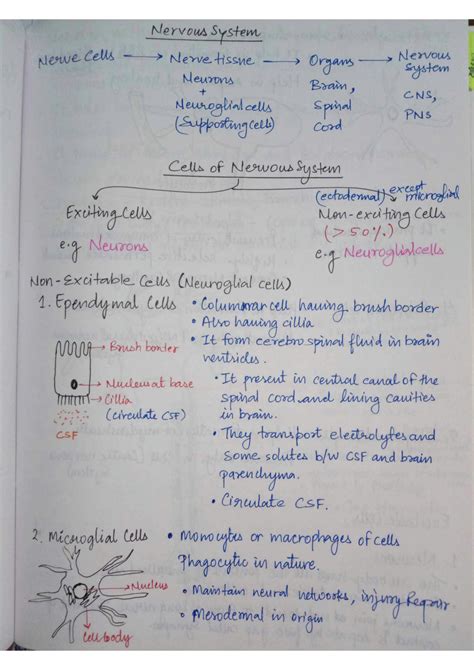 Nervous System
Nerve Cells → Nerve tissue → Organs → Nervous System
Neurons + Neuroglial cells (Supporting Cells)
Brain, Spinal Cord
CNS, PNS
Cells of Nervous System
Exciting Cells
e.g Neurons
(ectodermal) except microglial
Non-exciting Cells
(>50%)
e.g Neuroglial cells
Non-Excitable Cells (Neuroglial cells)
1. Ependymal Cells
• Columnar cell having brush border
• Also having cillia
• It form cerebro spinal fluid in brain
ventricles.
• It present in central canal of the
spinal cord and lining cavities
in brain.
• They transport electrolytes and
some solutes b/w CSF and brain
parenchyma.
• Circulate CSF.
Brush border
Nucleus at base
Cillia
(circulate CSF)
CSF
2. Microglial Cells
• Monocytes or macrophages of cells
Phagocytic in nature.
• Maintain neural networks, injury Repair
• Mesodermal in origin
Nucleus
Cell body